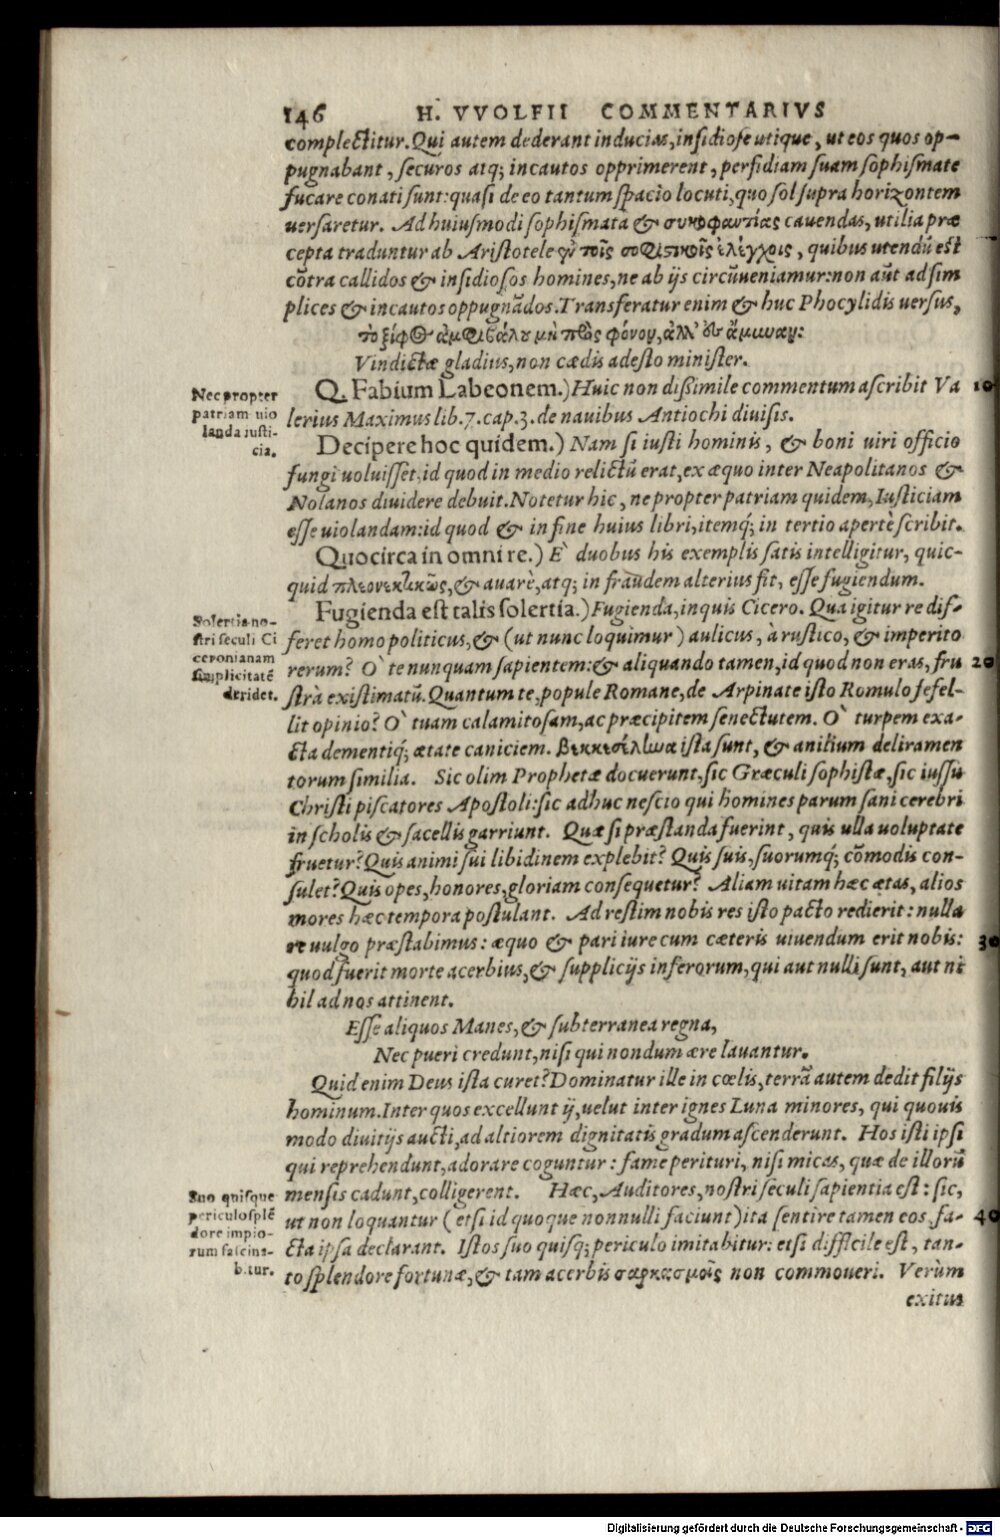 146 H. VVOLFII COMMENTARIVS
complectitur. Qui autem dederant inducias, insidiose utique, ut eos quos op-
pugnabant, securos atq; incautos opprimerent, perfidiam suam sophismate
fucare conati sunt: quasi de eo tantum spacio locuti, quo sol supra horizontem
uersaretur. Ad huiusmodi sophismata & συκοφαντίας cauendas, utilia præ
cepta traduntur ab Aristotele ἐν τοῖς σοφιστικοῖς ἐλέγχοις, quibus utendū est
cōtra callidos & insidiosos homines, ne ab ijs circūueniamur: non aūt ad sim
plices & incautos oppugnādos. Transferatur enim & huc Phocylidis uersus,
τὸ ξίφος ἀμφιβάλου μὴ πρὸς φόνον, ἀλλ' ἐς ἄμυναν:
Vindictæ gladius, non cædis adesto minister.
Nec propter
patriam uio
landa iusti-
cia.
Q. Fabium Labeonem.) Huic non dißimile commentum ascribit Va 10
lerius Maximus lib. 7. cap. 3. de nauibus Antiochi diuisis.
Decipere hoc quidem.) Nam si iusti hominis, & boni uiri officio
fungi uoluisset, id quod in medio relictū erat, ex æquo inter Neapolitanos &
Nolanos diuidere debuit. Notetur hic, ne propter patriam quidem, Iusticiam
esse uiolandam: id quod & in fine huius libri, itemq́; in tertio apertè scribit.
Quocirca in omni re.) E` duobus his exemplis satis intelligitur, quic-
quid πλεονεκτικῶς, & auarè, atq; in fraudem alterius fit, esse fugiendum.
Solertia no-
stri seculi Ci
ceronianam
simplicitatē
deridet.
Fugienda est talis solertia.) Fugienda, inquis Cicero. Qua igitur re dif-
feret homo politicus, & (ut nunc loquimur) aulicus, à rustico, & imperito
rerum? O` te nunquam sapientem: & aliquando tamen, id quod non eras, fru 20
strà existimatū. Quantum te, popule Romane, de Arpinate isto Romulo fefel-
lit opinio? O` tuam calamitosam, ac præcipitem senectutem. O` turpem exa-
cta dementiq́; ætate caniciem. βεκκεσέληνα ista sunt, & anilium deliramen
torum similia. Sic olim Prophetæ docuerunt, sic Græculi sophistæ, sic iussu
Christi piscatores Apostoli: sic adhuc nescio qui homines parum sani cerebri
in scholis & sacellis garriunt. Quæ si præstanda fuerint, quis ulla uoluptate
fruetur? Quis animi sui libidinem explebit? Quis suis, suorumq́; cōmodis con-
sulet? Quis opes, honores, gloriam consequetur? Aliam uitam hæc ætas, alios
mores hæc tempora postulant. Ad restim nobis res isto pacto redierit: nulla
re uulgo præstabimus: æquo & pari iure cum cæteris uiuendum erit nobis: 30
quod fuerit morte acerbius, & supplicijs inferorum, qui aut nulli sunt, aut ni
hil ad nos attinent.
Esse aliquos Manes, & subterranea regna,
Nec pueri credunt, nisi qui nondum ære lauantur.
Quid enim Deus ista curet? Dominatur ille in cœlis, terrā autem dedit filijs
hominum. Inter quos excellunt ij, uelut inter ignes Luna minores, qui quouis
modo diuitijs aucti, ad altiorem dignitatis gradum ascenderunt. Hos isti ipsi
qui reprehendunt, adorare coguntur: fame perituri, nisi micas, quæ de illorū
Suo quisque
periculo splē
dore impio-
rum fascina-
bitur.
mensis cadunt, colligerent. Hæc, Auditores, nostri seculi sapientia est: sic,
ut non loquantur (etsi id quoque nonnulli faciunt) ita sentire tamen eos, fa- 40
cta ipsa declarant. Istos suo quisq; periculo imitabitur: etsi difficile est, tan-
to splendore fortunæ, & tam acerbis σαρκασμοῖς non commoueri. Verùm
exitus
Digitalisierung gefördert durch die Deutsche Forschungsgemeinschaft - DFG